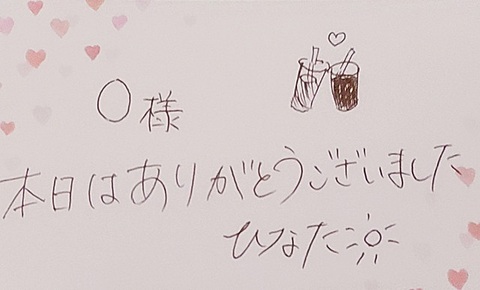 ○様
本日はありがとうございました
ひなた